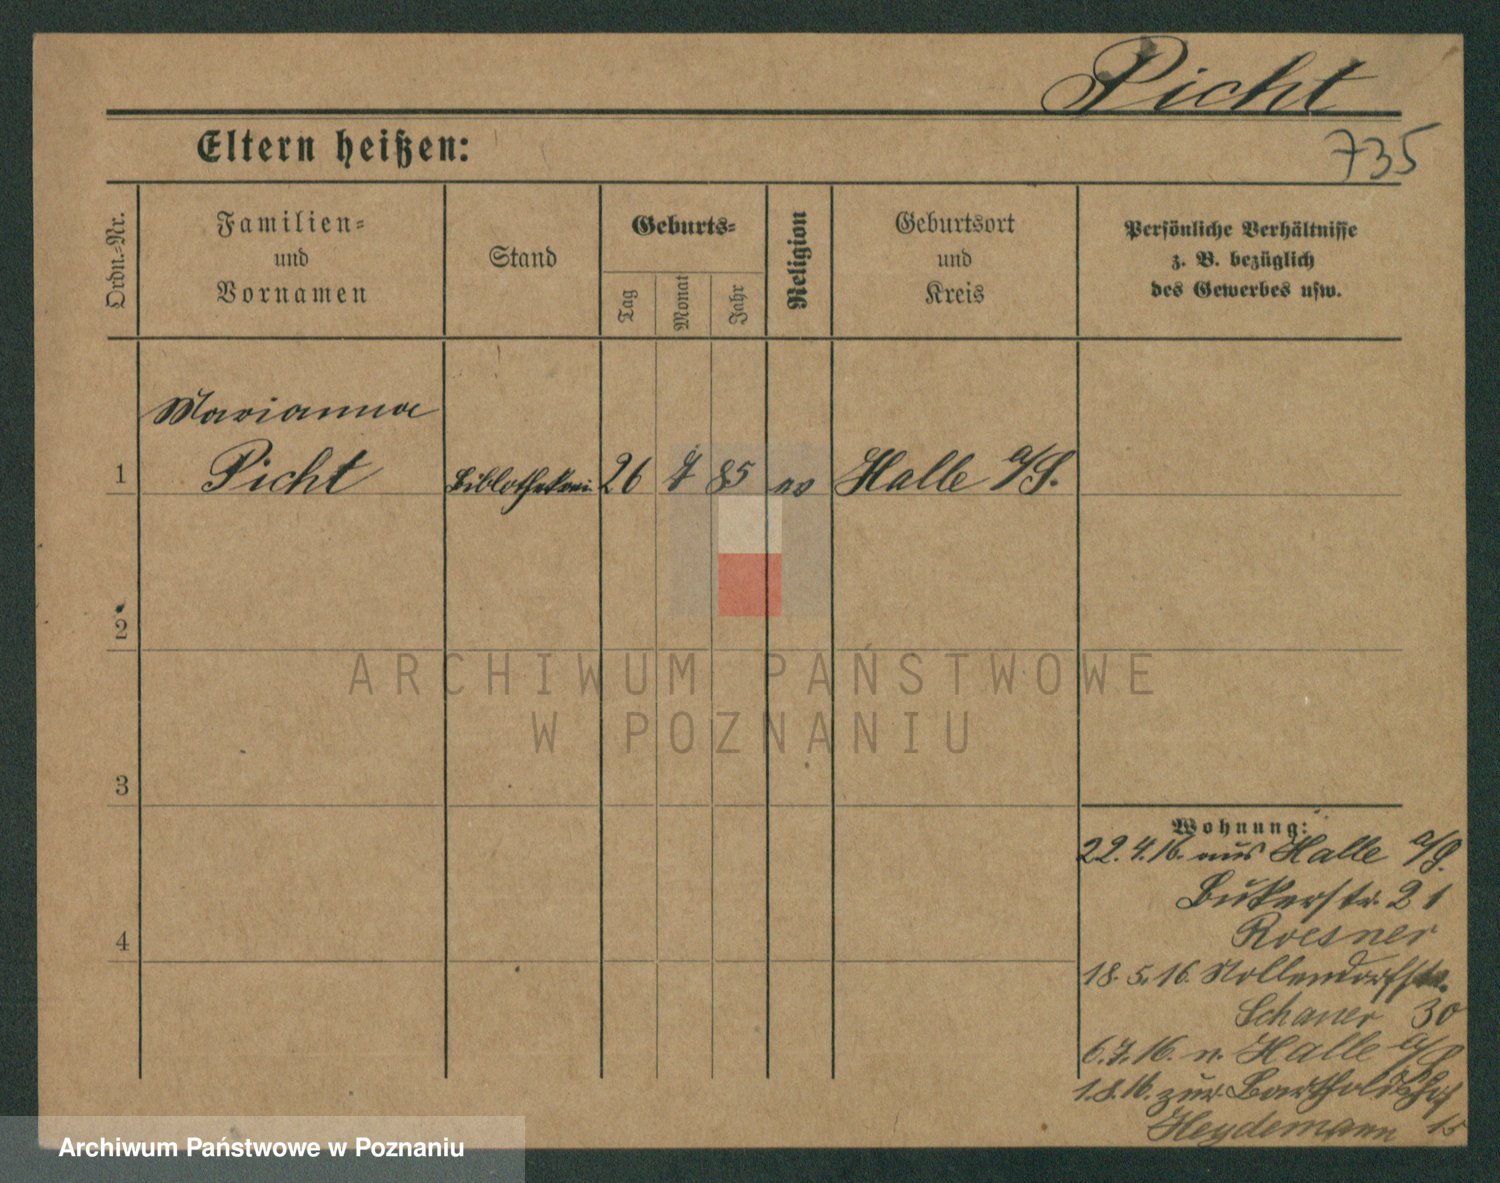 Picht
735
Eltern heißen:
Ordn.-Nr.
Familien-
und
Vornamen
Stand
Geburts-
Tag
Monat
Jahr
Religion
Geburtsort
und
Kreis
Persönliche Verhältnisse
z. B. bezüglich
des Gewerbes usw.
Marianna
1 Picht 26 7 85 ev Halle a/S.
2
3
4
Wohnung:
22.4.16. aus Halle a/S.
Bukerstr. 21
Roesner
18.5.16. Nollendorfstr.
Schaner 30
6.7.16. n. Halle a/S
1.8.16. zur
Heydemann 15
ARCHIWUM PAŃSTWOWE
W POZNANIU
Archiwum Państwowe w Poznaniu